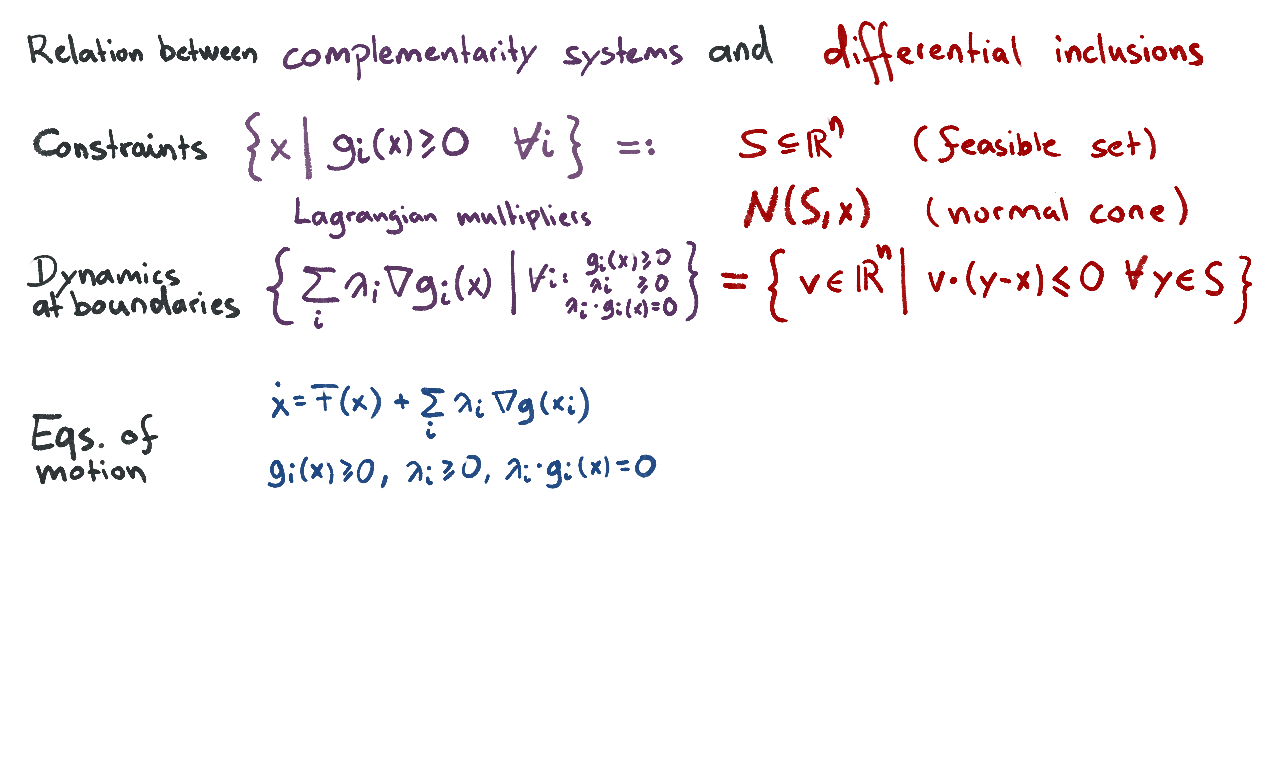 Relation between complementarity systems and differential inclusions
Constraints {x | gᵢ(x)⩾0 ∀i} =: S⊆ℝⁿ (feasible set)
Lagrangian multipliers N(S,x) (normal cone)
Dynamics at boundaries {∑ᵢ λᵢ∇gᵢ(x) | ∀i: gᵢ(x)⩾0 λᵢ ⩾0 λᵢ·gᵢ(x)=0} = {v∈ℝⁿ | v·(y-x)⩽0 ∀y∈S}
Eqs. of motion
ẋ = F(x) + ∑ᵢ λᵢ∇g(xᵢ)
gᵢ(x)⩾0, λᵢ⩾0, λᵢ·gᵢ(x)=0